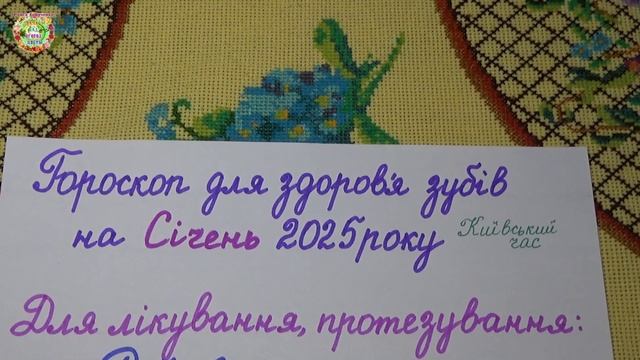 Гороскоп для здоров'я зубів
на Січень 2025 року
Київський
час
Для лікування, протезування: